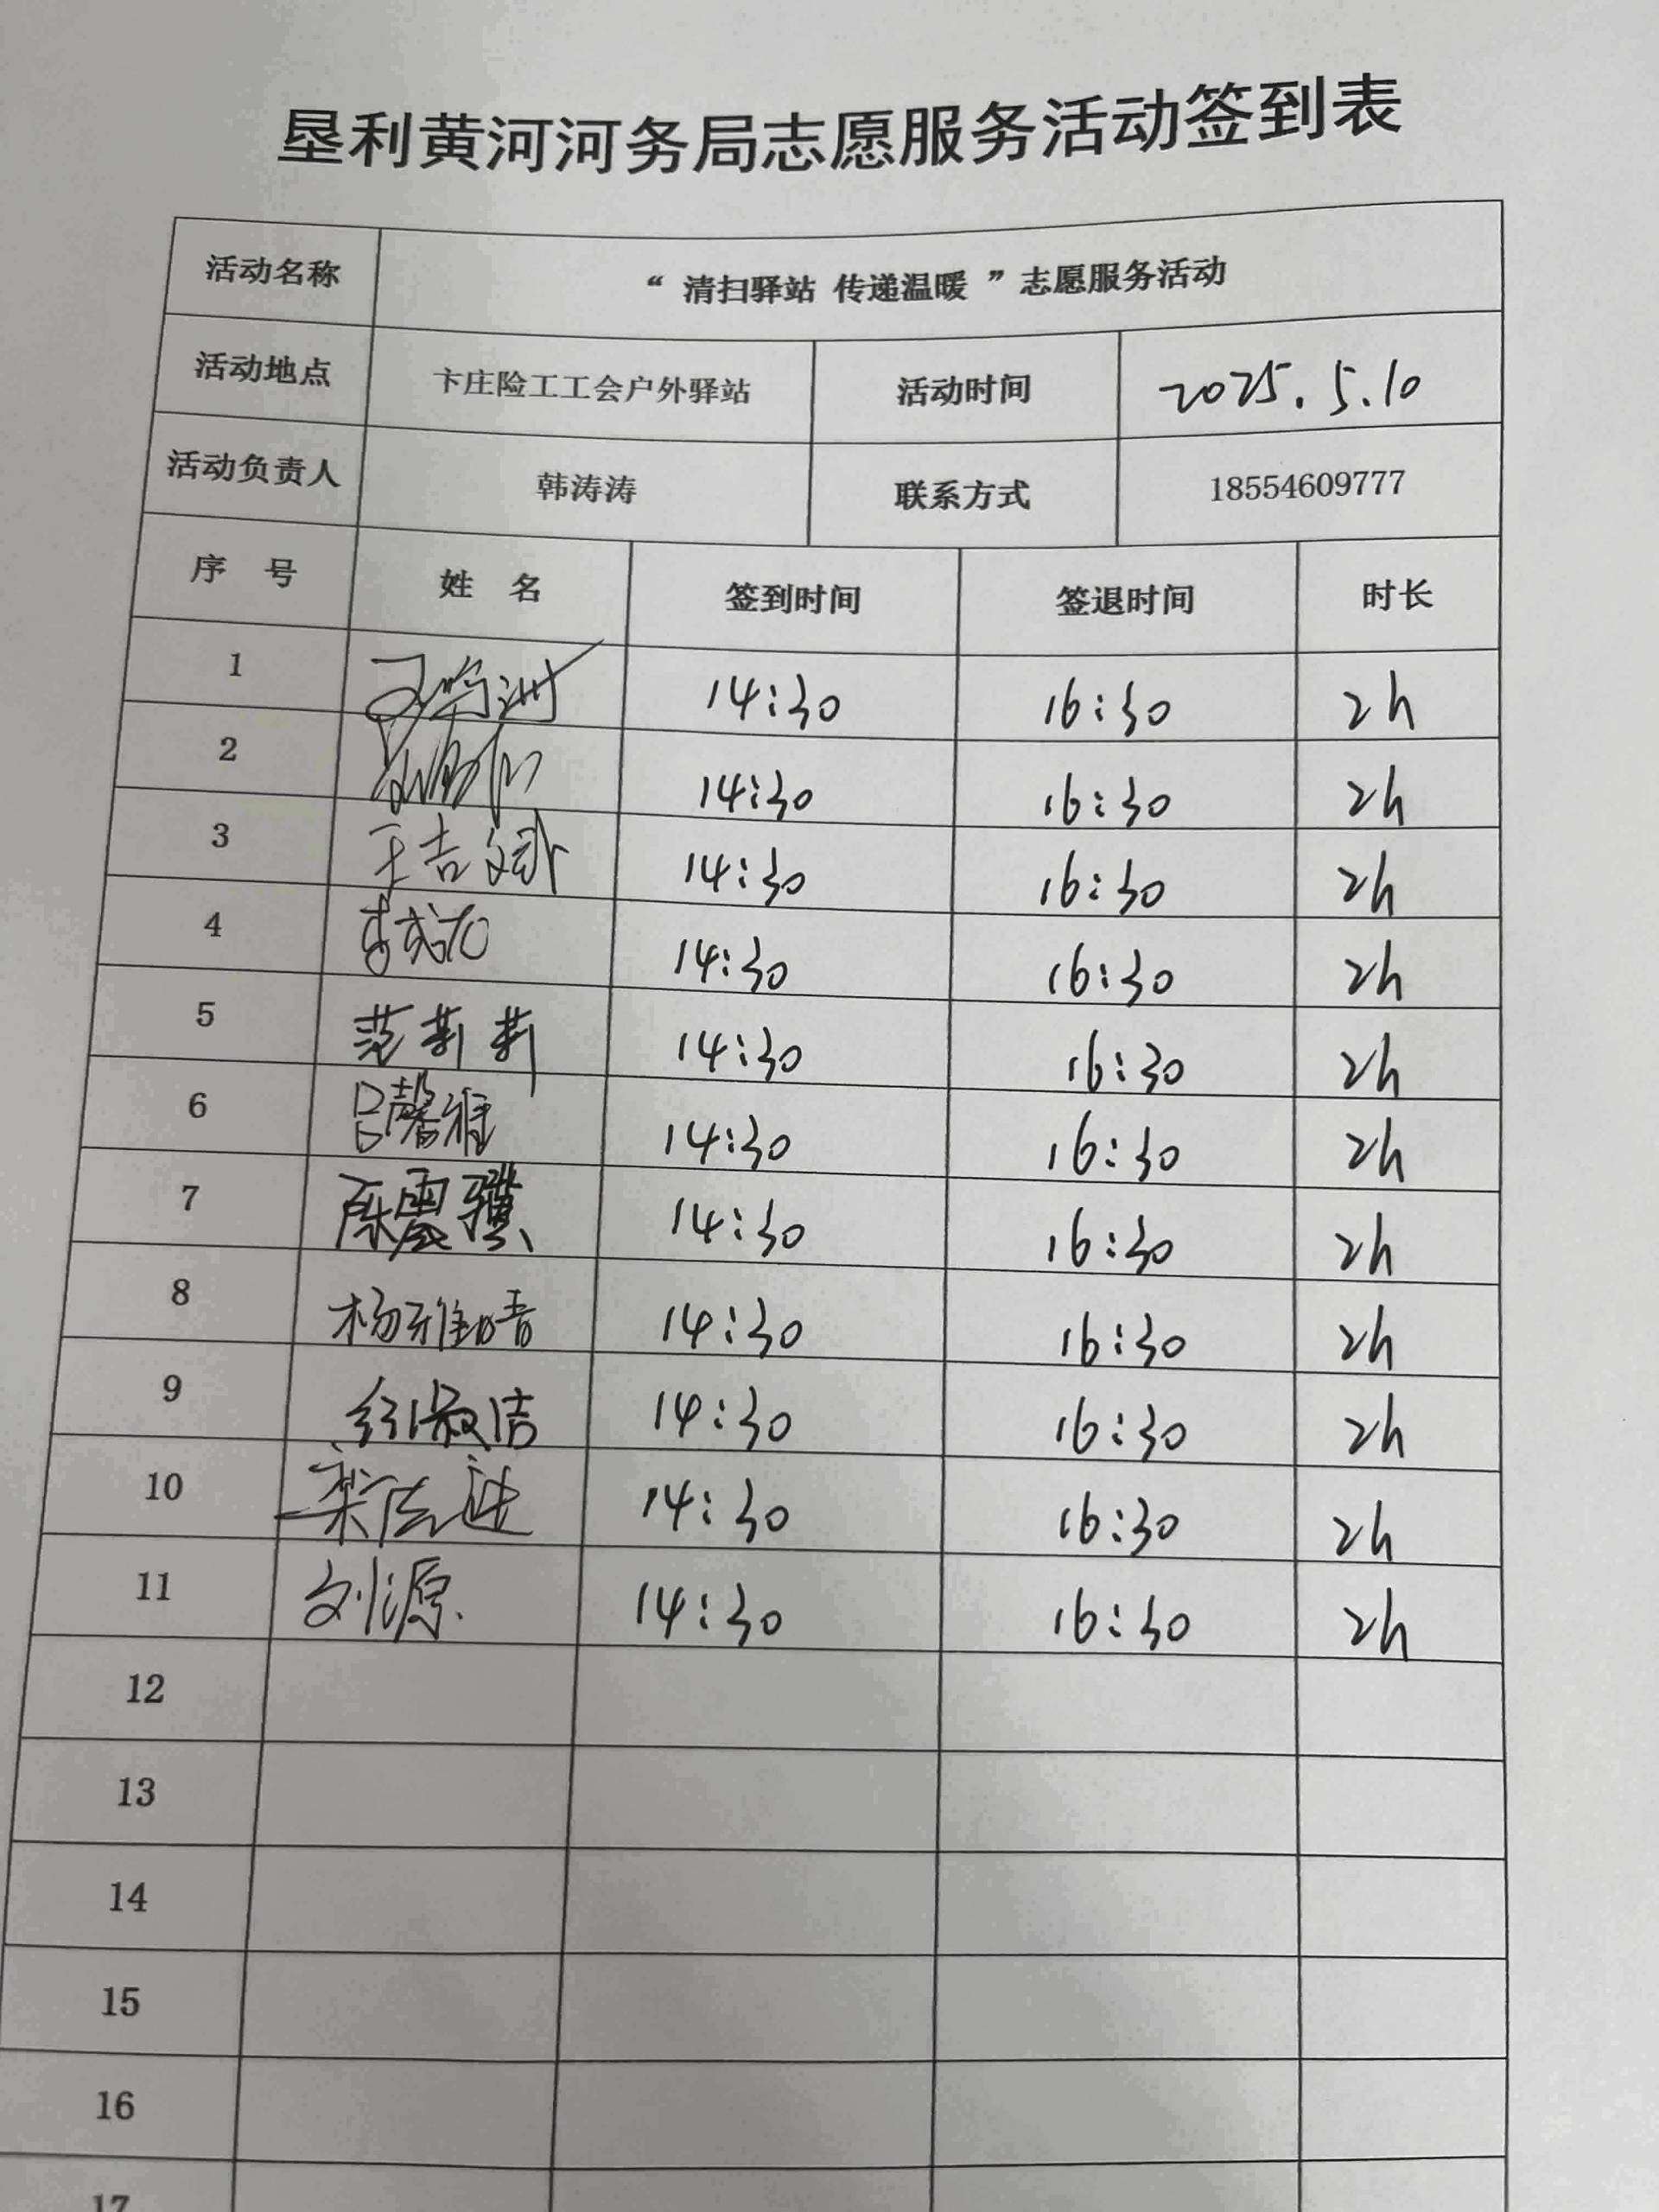 垦利黄河河务局志愿服务活动签到表
活动名称 “ 清扫驿站 传递温暖 ” 志愿服务活动
活动地点 卞庄险工工会户外驿站 活动时间 2025.5.10
活动负责人 韩涛涛 联系方式 18554609777
序 号 姓 名 签到时间 签退时间 时长
1 14:30 16:30 2h
2 14:30 16:30 2h
3 王吉文 14:30 16:30 2h
4 李 14:30 16:30 2h
5 范莉莉 14:30 16:30 2h
6 吕馨雅 14:30 16:30 2h
7 陈震骥 14:30 16:30 2h
8 杨雅晴 14:30 16:30 2h
9 纪淑洁 14:30 16:30 2h
10 梁 14:30 16:30 2h
11 刘源 14:30 16:30 2h
12
13
14
15
16
17